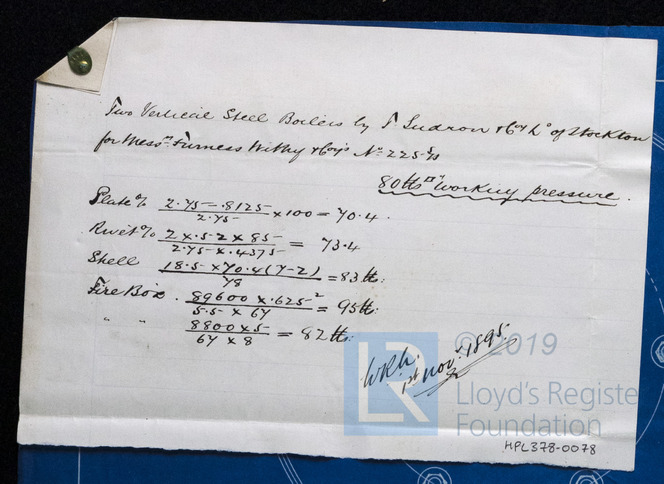 Two Vertical Steel Boilers by T Sudron & Coy Ld of Stockton
for Messrs Furness Withy & Coy's No 225 S/s
80 lbs Working pressure.
Plate % 2.75 - .8125 / 2.75 × 100 = 70.4.
Rivet % 2 × .52 × 85 / 2.75 × .4375 = 73.4
Shell 18.5 × 70.4 (7-2) / 78 = 83 lbs:
Fire Box. 89600 × .625² / 5.5 × 67 = 95 lbs:
" " 8800 × 5 / 67 × 8 = 82 lbs:
1st Nov. 1895.
© 2019
LR
Lloyd's Registe
Foundation
HPL378-0078